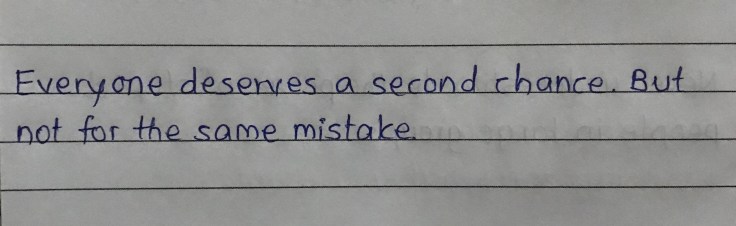 Everyone deserves a second chance. But
not for the same mistake.